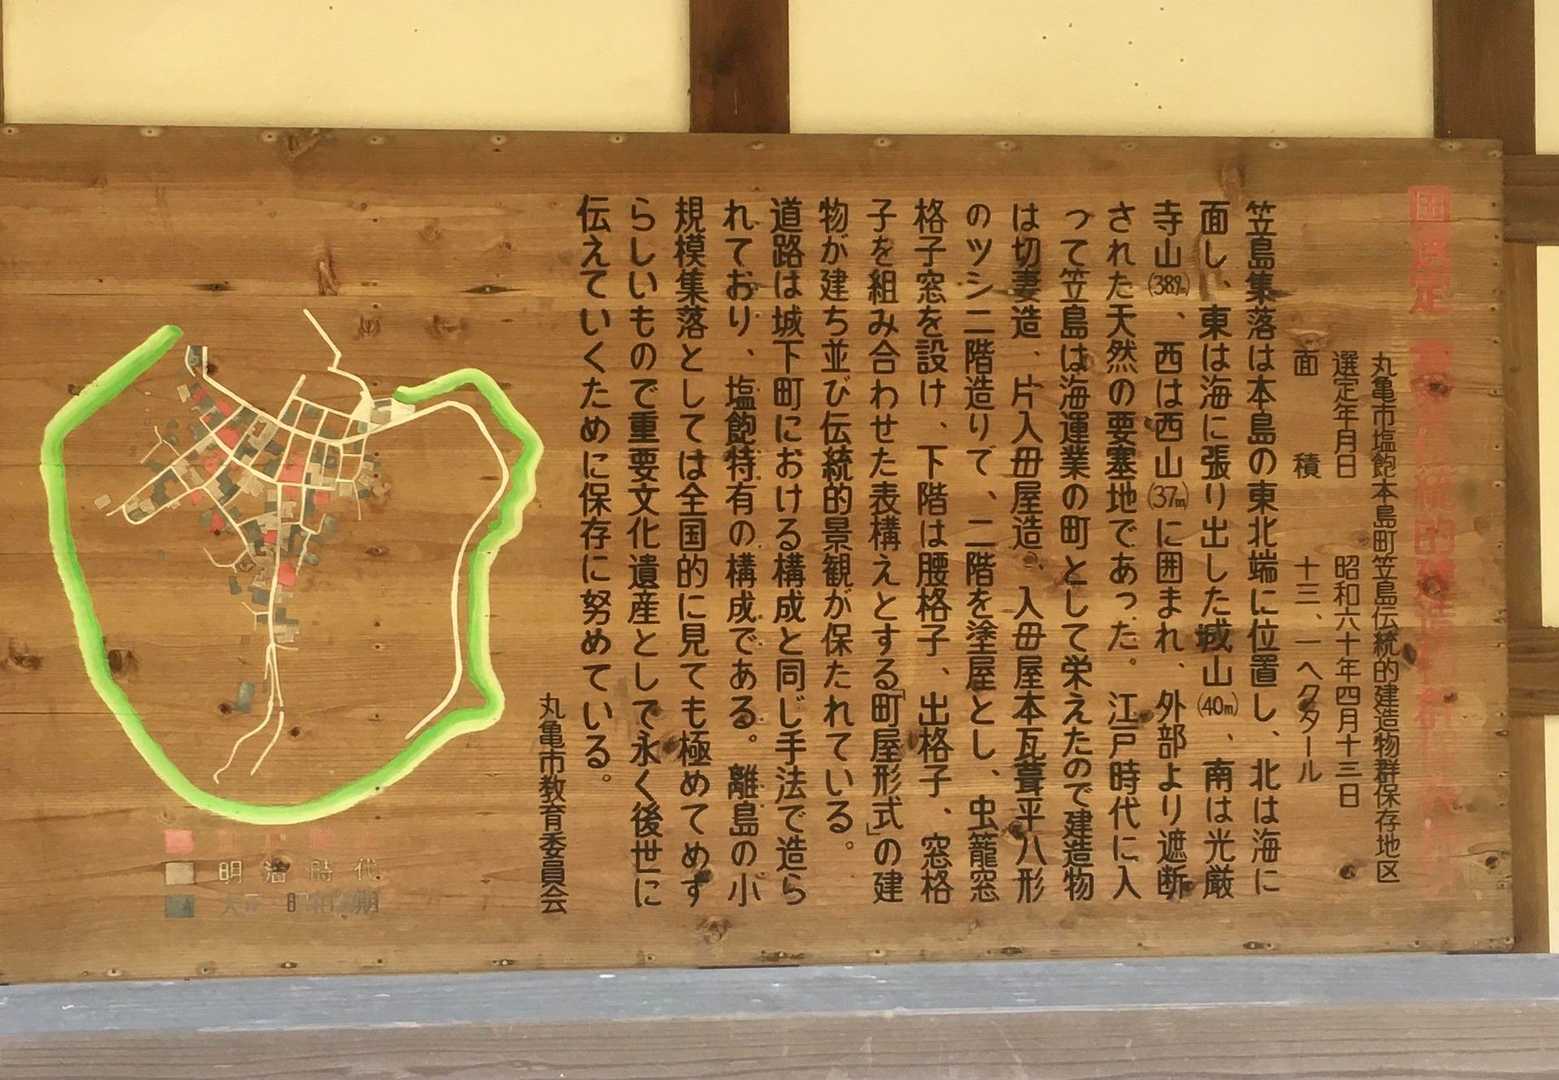 国選定 重要伝統的建造物群保存地区
丸亀市塩飽本島町笠島伝統的建造物群保存地区
選定年月日 昭和六十年四月十三日
面積 十三、一ヘクタール
笠島集落は本島の東北端に位置し、北は海に
面し、東は海に張り出した城山(40m)、南は光厳
寺山(38m)、西は西山(37m)に囲まれ、外部より遮断
された天然の要塞地であった。江戸時代に入
って笠島は海運業の町として栄えたので建造物
は切妻造、片入母屋造、入母屋本瓦葺平八形
のツシ二階造りで、二階を塗屋とし、虫籠窓
格子窓を設け、下階は腰格子、出格子、窓格
子を組み合わせた表構えとする「町屋形式」の建
物が建ち並び伝統的景観が保たれている。
道路は城下町における構成と同じ手法で造ら
れており、塩飽特有の構成である。離島の小
規模集落としては全国的に見ても極めてめず
らしいもので重要文化遺産として永く後世に
伝えていくために保存に努めている。
丸亀市教育委員会
明治時代